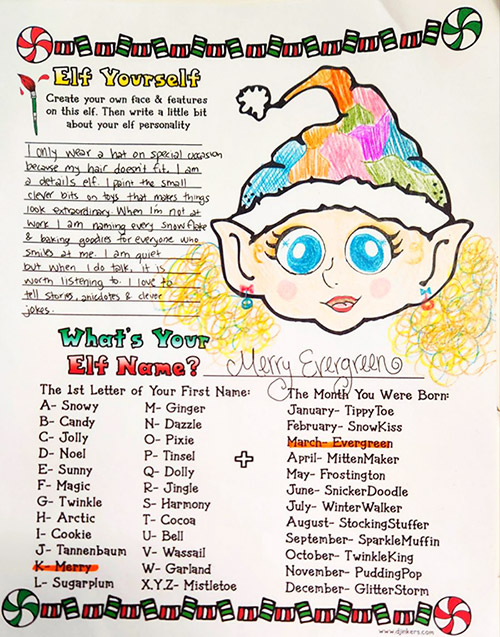 Elf Yourself
Create your own face & features
on this elf. Then write a little bit
about your elf personality
I only wear a hat on special occasion
because my hair doesn't fit. I am
a details elf. I paint the small
clever bits on toys that makes things
look extraordinary. When I'm not at
work I am naming every snowflake
& baking goodies for everyone who
smiles at me. I am quiet
but when I do talk, it is
worth listening to. I love to
tell stories, anicdotes & clever
jokes.
What's Your
Elf Name? Merry Evergreen
The 1st Letter of Your First Name:
A- Snowy
B- Candy
C- Jolly
D- Noel
E- Sunny
F- Magic
G- Twinkle
H- Arctic
I- Cookie
J- Tannenbaum
K- Merry
L- Sugarplum
M- Ginger
N- Dazzle
O- Pixie
P- Tinsel
Q- Dolly
R- Jingle
S- Harmony
T- Cocoa
U- Bell
V- Wassail
W- Garland
X,Y,Z- Mistletoe
+
The Month You Were Born:
January- TippyToe
February- SnowKiss
March- Evergreen
April- MittenMaker
May- Frostington
June- SnickerDoodle
July- WinterWalker
August- StockingStuffer
September- SparkleMuffin
October- TwinkleKing
November- PuddingPop
December- GlitterStorm
www.djinkers.com